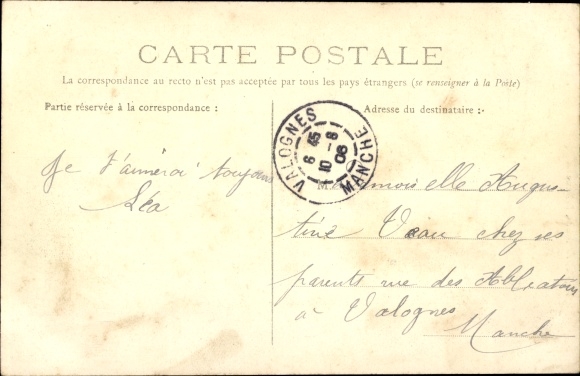 CARTE POSTALE
La correspondance au recto n'est pas acceptée par tous les pays étrangers (se renseigner à la Poste)
Partie réservée à la correspondance :
Adresse du destinataire :
VALOGNES
6 45
10 -8
06
MANCHE
Je t'aimerai toujours
Léa
Mademoiselle Augus-
tine Veau chez ses
parents rue des
à Valognes
Manche